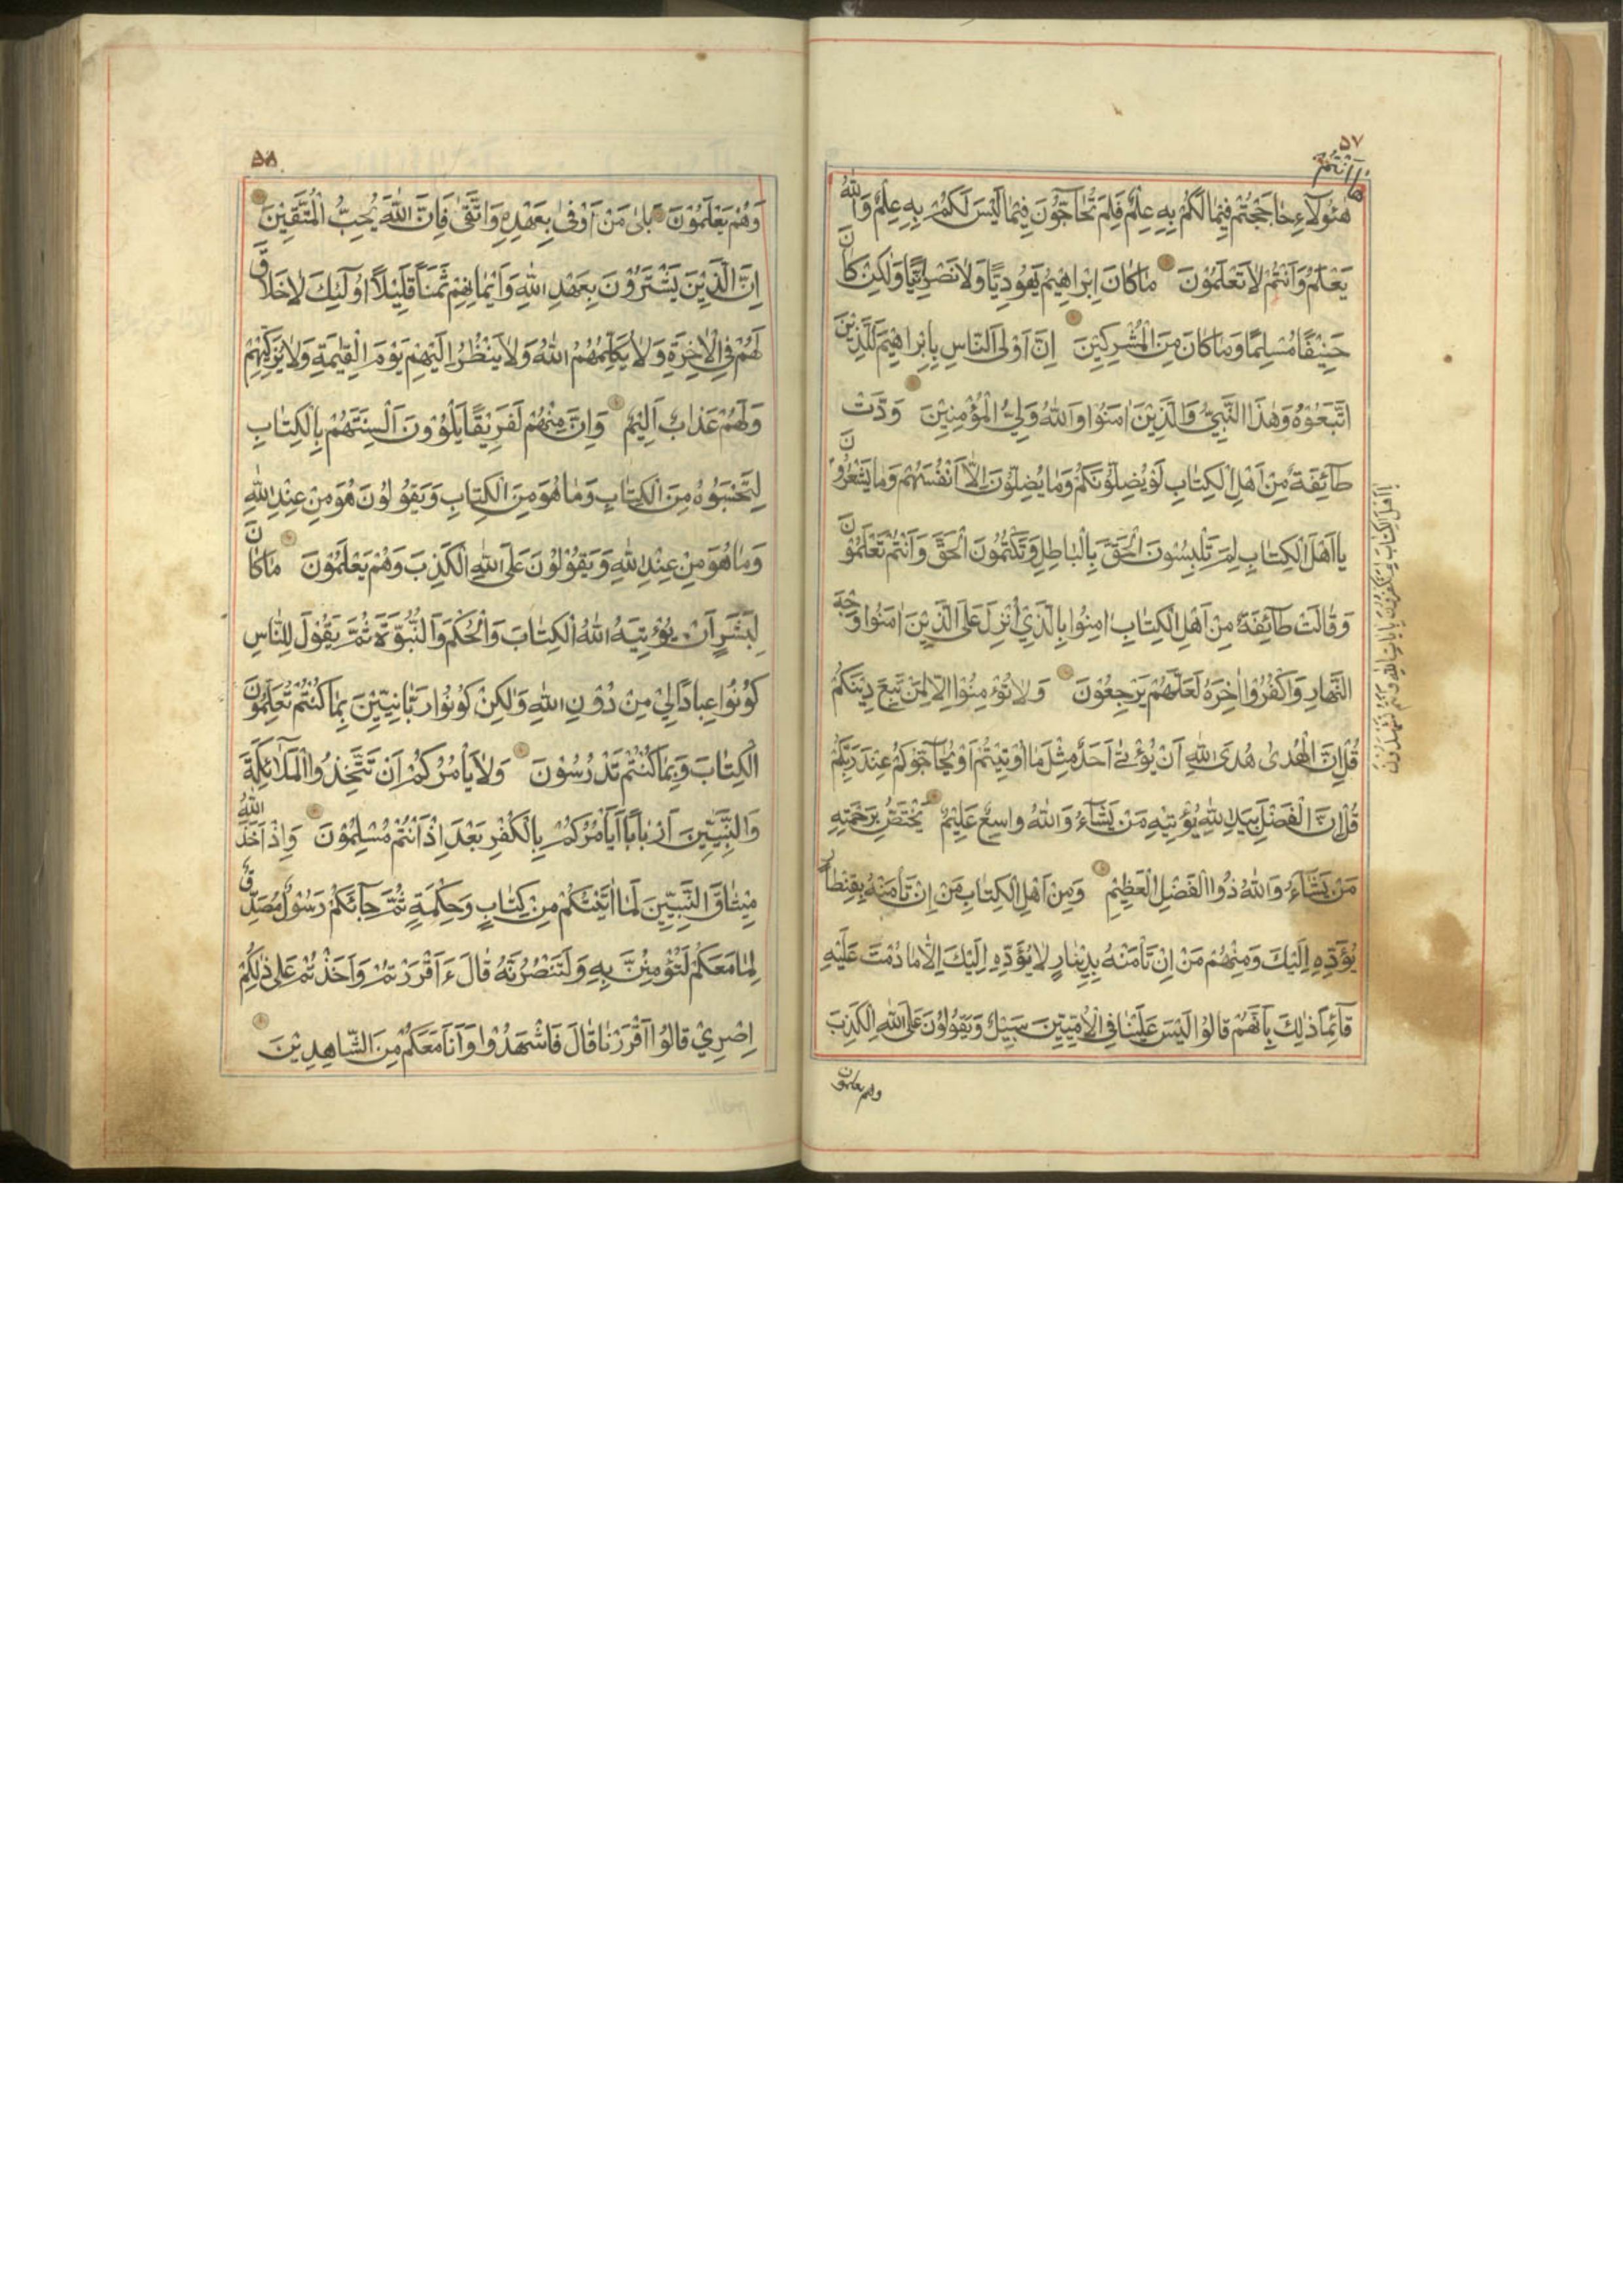 ۵۷
ها اَنْتُمْ
هٰؤُلَآءِ حَاجَجْتُمْ فِيمَا لَكُمْ بِهِ عِلْمٌ فَلِمَ تُحَآجُّونَ فِيمَا لَيْسَ لَكُمْ بِهِ عِلْمٌ وَاللّٰهُ
يَعْلَمُ وَاَنْتُمْ لَا تَعْلَمُوْنَ مَا كَانَ اِبْرَاهِيْمُ يَهُودِيًّا وَلَا نَصْرَانِيًّا وَلٰكِنْ كَانَ
حَنِيْفًا مُسْلِمًا وَمَا كَانَ مِنَ الْمُشْرِكِيْنَ اِنَّ اَوْلَى النَّاسِ بِاِبْرَاهِيْمَ لَلَّذِيْنَ
اتَّبَعُوْهُ وَهٰذَا النَّبِيُّ وَالَّذِيْنَ اٰمَنُوْا وَاللّٰهُ وَلِيُّ الْمُؤْمِنِيْنَ وَدَّتْ
طَآئِفَةٌ مِنْ اَهْلِ الْكِتَابِ لَوْ يُضِلُّوْنَكُمْ وَمَا يُضِلُّوْنَ اِلَّا اَنْفُسَهُمْ وَمَا يَشْعُرُوْنَ
يَا اَهْلَ الْكِتَابِ لِمَ تَكْفُرُوْنَ بِاٰيَاتِ اللّٰهِ وَاَنْتُمْ تَشْهَدُوْنَ
يَا اَهْلَ الْكِتَابِ لِمَ تَلْبِسُوْنَ الْحَقَّ بِالْبَاطِلِ وَتَكْتُمُوْنَ الْحَقَّ وَاَنْتُمْ تَعْلَمُوْنَ
وَقَالَتْ طَآئِفَةٌ مِنْ اَهْلِ الْكِتَابِ اٰمِنُوا بِالَّذِيْ اُنْزِلَ عَلَى الَّذِيْنَ اٰمَنُوا وَجْهَ
النَّهَارِ وَاكْفُرُوْا اٰخِرَهُ لَعَلَّهُمْ يَرْجِعُوْنَ وَلَا تُؤْمِنُوْا اِلَّا لِمَنْ تَبِعَ دِيْنَكُمْ
قُلْ اِنَّ الْهُدٰى هُدَى اللّٰهِ اَنْ يُؤْتٰى اَحَدٌ مِثْلَ مَا اُوْتِيْتُمْ اَوْ يُحَآجُّوْكُمْ عِنْدَ رَبِّكُمْ
قُلْ اِنَّ الْفَضْلَ بِيَدِ اللّٰهِ يُؤْتِيْهِ مَنْ يَشَآءُ وَاللّٰهُ وَاسِعٌ عَلِيْمٌ يَخْتَصُّ بِرَحْمَتِهِ
مَنْ يَشَآءُ وَاللّٰهُ ذُوا الْفَضْلِ الْعَظِيْمِ وَمِنْ اَهْلِ الْكِتَابِ مَنْ اِنْ تَأْمَنْهُ بِقِنْطَارٍ
يُؤَدِّهِ اِلَيْكَ وَمِنْهُمْ مَنْ اِنْ تَأْمَنْهُ بِدِيْنَارٍ لَا يُؤَدِّهِ اِلَيْكَ اِلَّا مَا دُمْتَ عَلَيْهِ
قَآئِمًا ذٰلِكَ بِاَنَّهُمْ قَالُوْا لَيْسَ عَلَيْنَا فِي الْاُمِّيِّيْنَ سَبِيْلٌ وَيَقُوْلُوْنَ عَلَى اللّٰهِ الْكَذِبَ
وهم يعلمون
۵۸
وَهُمْ يَعْلَمُوْنَ بَلٰى مَنْ اَوْفٰى بِعَهْدِهِ وَاتَّقٰى فَاِنَّ اللّٰهَ يُحِبُّ الْمُتَّقِيْنَ
اِنَّ الَّذِيْنَ يَشْتَرُوْنَ بِعَهْدِ اللّٰهِ وَاَيْمَانِهِمْ ثَمَنًا قَلِيْلًا اُولٰئِكَ لَا خَلَاقَ
لَهُمْ فِي الْاٰخِرَةِ وَلَا يُكَلِّمُهُمُ اللّٰهُ وَلَا يَنْظُرُ اِلَيْهِمْ يَوْمَ الْقِيٰمَةِ وَلَا يُزَكِّيْهِمْ
وَلَهُمْ عَذَابٌ اَلِيْمٌ وَاِنَّ مِنْهُمْ لَفَرِيْقًا يَلْوُوْنَ اَلْسِنَتَهُمْ بِالْكِتَابِ
لِتَحْسَبُوْهُ مِنَ الْكِتَابِ وَمَا هُوَ مِنَ الْكِتَابِ وَيَقُوْلُوْنَ هُوَ مِنْ عِنْدِ اللّٰهِ
وَمَا هُوَ مِنْ عِنْدِ اللّٰهِ وَيَقُوْلُوْنَ عَلَى اللّٰهِ الْكَذِبَ وَهُمْ يَعْلَمُوْنَ مَا كَانَ
لِبَشَرٍ اَنْ يُؤْتِيَهُ اللّٰهُ الْكِتَابَ وَالْحُكْمَ وَالنُّبُوَّةَ ثُمَّ يَقُوْلَ لِلنَّاسِ
كُوْنُوا عِبَادًا لِيْ مِنْ دُوْنِ اللّٰهِ وَلٰكِنْ كُوْنُوا رَبَّانِيِّيْنَ بِمَا كُنْتُمْ تُعَلِّمُوْنَ
الْكِتَابَ وَبِمَا كُنْتُمْ تَدْرُسُوْنَ وَلَا يَأْمُرُكُمْ اَنْ تَتَّخِذُوا الْمَلَآئِكَةَ
وَالنَّبِيِّيْنَ اَرْبَابًا اَيَأْمُرُكُمْ بِالْكُفْرِ بَعْدَ اِذْ اَنْتُمْ مُسْلِمُوْنَ وَاِذْ اَخَذَ اللّٰهُ
مِيْثَاقَ النَّبِيِّيْنَ لَمَا اٰتَيْتُكُمْ مِنْ كِتَابٍ وَحِكْمَةٍ ثُمَّ جَآئَكُمْ رَسُوْلٌ مُصَدِّقٌ
لِمَا مَعَكُمْ لَتُؤْمِنُنَّ بِهِ وَلَتَنْصُرُنَّهُ قَالَ ءَاَقْرَرْتُمْ وَاَخَذْتُمْ عَلٰى ذٰلِكُمْ
اِصْرِيْ قَالُوْا اَقْرَرْنَا قَالَ فَاشْهَدُوْا وَاَنَا مَعَكُمْ مِنَ الشَّاهِدِيْنَ